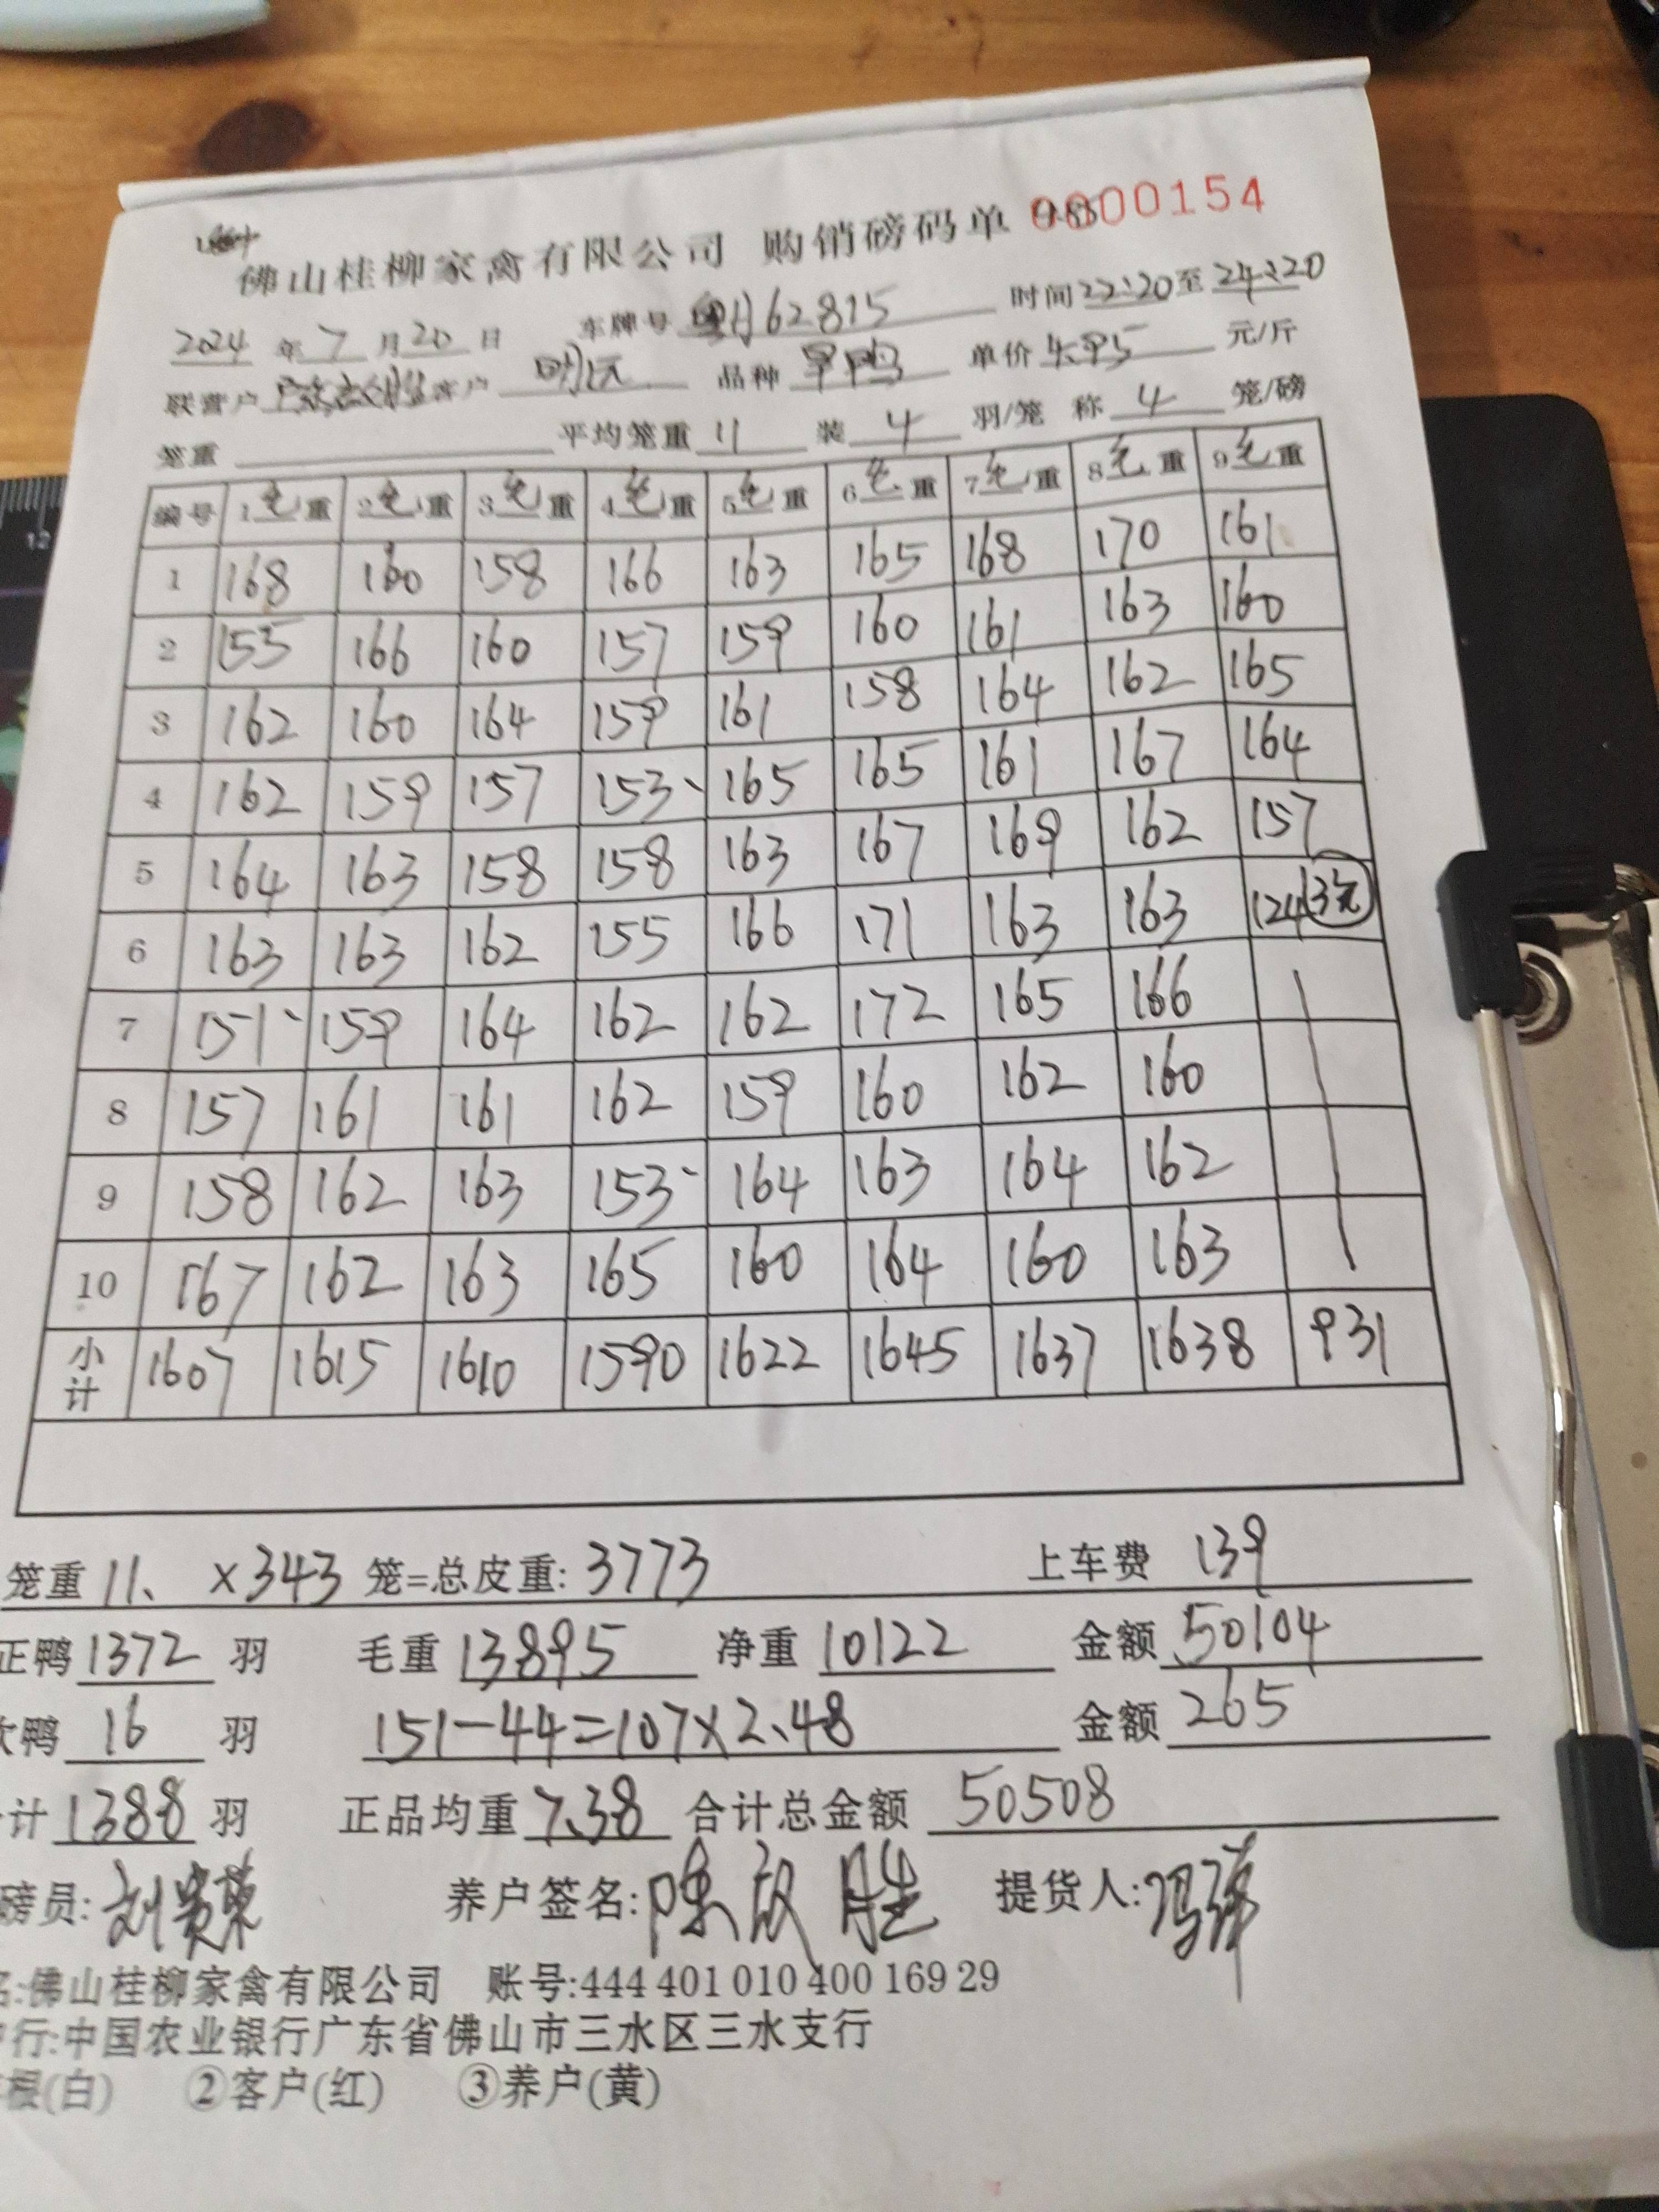 佛山桂柳家禽有限公司 购销磅码单 0000154
2024 年 7 月 20 日 车牌号 62815 时间 22:20 至 24:20
联营户 客户 明记 品种 旱鸭 单价 4.95 元/斤
笼重 平均笼重 11 装 4 羽/笼 称 4 笼/磅
编号 1毛重 2毛重 3毛重 4毛重 5毛重 6毛重 7毛重 8毛重 9毛重
1 168 160 158 166 163 165 168 170 161
2 155 166 160 157 159 160 161 163 160
3 162 160 164 159 161 158 164 162 165
4 162 159 157 153 165 165 161 167 164
5 164 163 158 158 163 167 169 162 157
6 163 163 162 155 166 171 163 163 124 3笼
7 151 159 164 162 162 172 165 166
8 157 161 161 162 159 160 162 160
9 158 162 163 153 164 163 164 162
10 167 162 163 165 160 164 160 163
小计 1607 1615 1610 1590 1622 1645 1637 1638 931
笼重 11、 ×343 笼=总皮重: 3773 上车费 139
正鸭 1372 羽 毛重 13895 净重 10122 金额 50104
鸭 16 羽 151-44=107×2.48 金额 265
计 1388 羽 正品均重 7.38 合计总金额 50508
磅员: 刘贵荣 养户签名: 陈 胜 提货人: 冯
名:佛山桂柳家禽有限公司 账号:444 401 010 400 169 29
行:中国农业银行广东省佛山市三水区三水支行
根(白) ②客户(红) ③养户(黄)